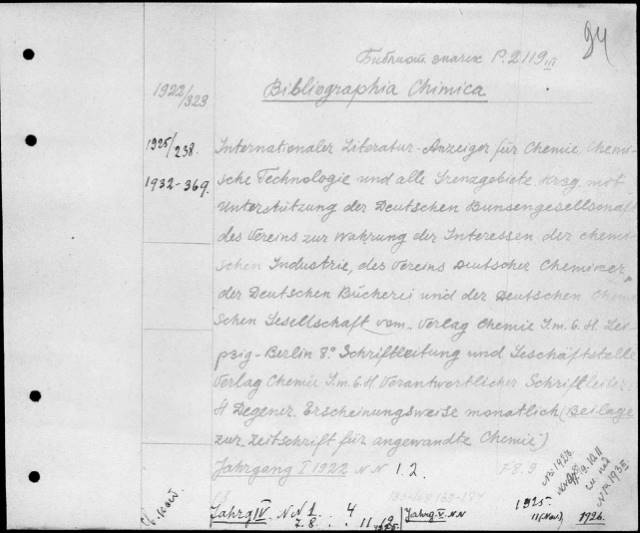 94
P. 2119 III
1922/323
Bibliographia Chimica
1925/238.
1932-369.
Internationaler Literatur-Anzeiger für Chemie, Chemi-
sche Technologie und alle Grenzgebiete. Hrsg. mit
Unterstützung der Deutschen Bunsengesellschaft
des Vereins zur Wahrung der Interessen der chemi-
schen Industrie, des Vereins Deutscher Chemiker,
der Deutschen Bücherei und der Deutschen Chemi-
schen Gesellschaft vom. Verlag Chemie G.m.b.H. Lei-
pzig-Berlin 8.° Schriftleitung und Geschäftstelle
Verlag Chemie G.m.b.H Verantwortlicher Schriftleiter
H Degener. Erscheinungsweise monatlich (Beilage
zur Zeitschrift für angewandte Chemie)
Jahrgang I 1922 NN 1. 2.
Jahrg IV. NN 1 . . 4
7. 8. . . 11 12
Jahrg. V. NN
1925.
11 (Nov.) 1926.